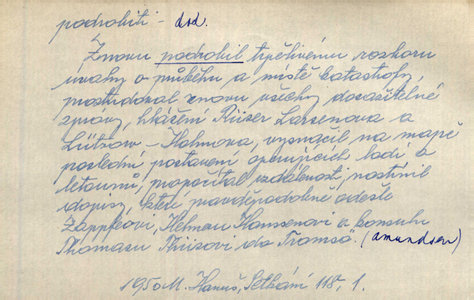 podrobiti - dod.
Znovu podrobil trpělivému rozboru
úvahy o průběhu a místě katastrofy,
prostudoval znovu všechny dosažitelné
zprávy, hlášení Riiser Larsenova a
Lützow - Holmova, vyznačil na mapě
poslední postavení operujících lodí a
letounů, propočítal vzdálenosti, nastínil
dopisy, které pravděpodobně odešle
Zappfeovi, Helmeru Hanssenovi a konsulu
Thomasu Thiisovi do Tromsö. (Amundsen)
1950 M. Hanuš, Setkání 118, 1.